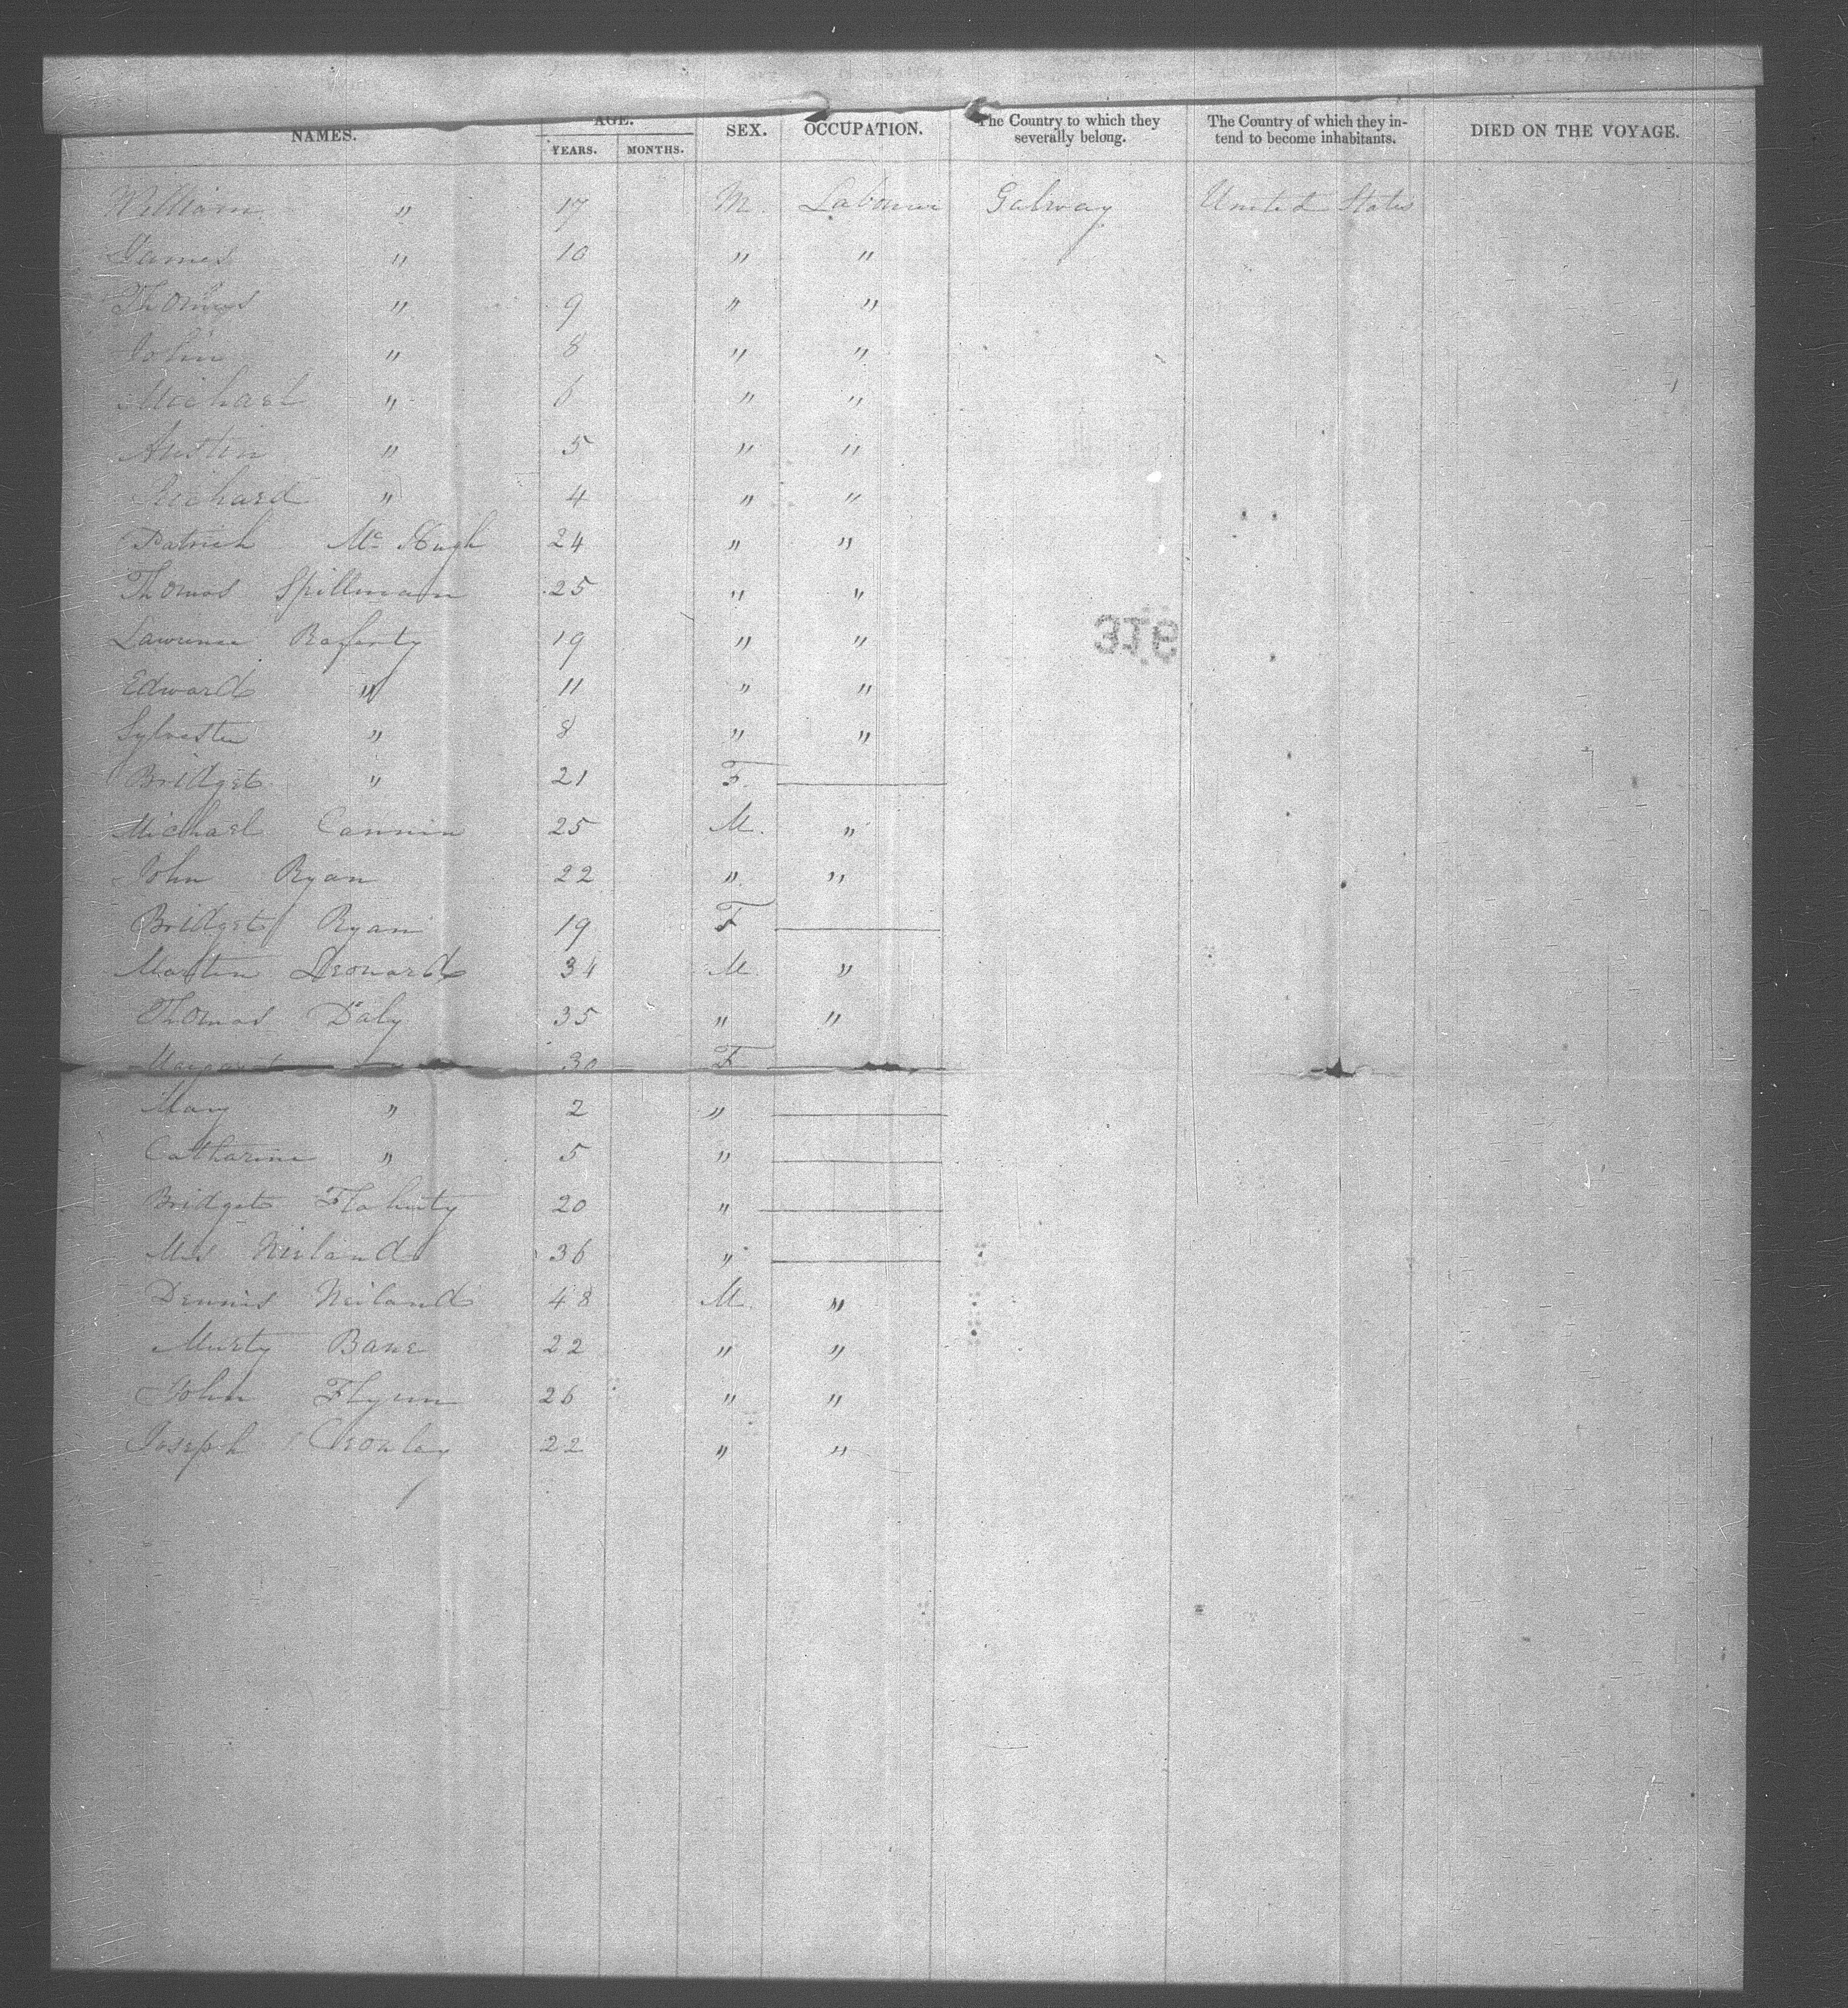 NAMES. AGE. SEX. OCCUPATION. The Country to which they severally belong. The Country of which they intend to become inhabitants. DIED ON THE VOYAGE.
YEARS. MONTHS.
William " 17 M. Labourer Galway United States
James " 10 " "
Thomas " 9 " "
John " 8 " "
Michael " 6 " "
Austin " 5 " "
Richard " 4 " "
Patrick Mc Hugh 24 " "
Thomas Spillman 25 " "
Lawrence Raferty 19 " "
Edward " 11 " "
Sylvester " 8 " "
Bridget " 21 F. —
Michael Cannin 25 M. "
John Ryan 22 " "
Bridget Ryan 19 F —
Martin Leonard 34 M "
Thomas Daly 35 " "
Margaret 30 F
Mary " 2 " —
Catharine " 5 " —
Bridget Flaherty 20 " —
Mrs Neiland 36 " —
Dennis Neiland 48 M. "
Murty Bane 22 " "
John Flynn 26 " "
Joseph 22 " "
316